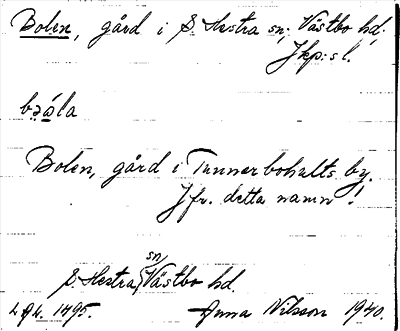 Bolen, gård i S. Hestra sn; Västbo hd.
Jkp:s l.
bɔạ́la
Bolen, gård i Tunnerbohults by.
Jfr. detta namn!
S. Hestra sn, Västbo hd.
1495. Anna Nilsson 1940.